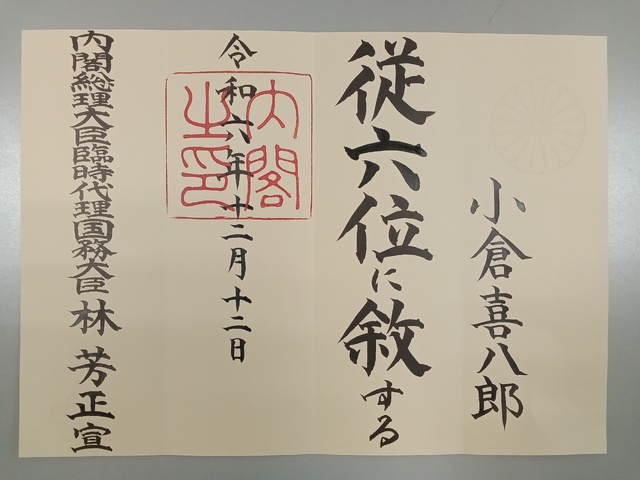 小倉喜八郎
従六位に敘する
令和六年十二月十二日
内閣之印
内閣総理大臣臨時代理国務大臣林芳正宣